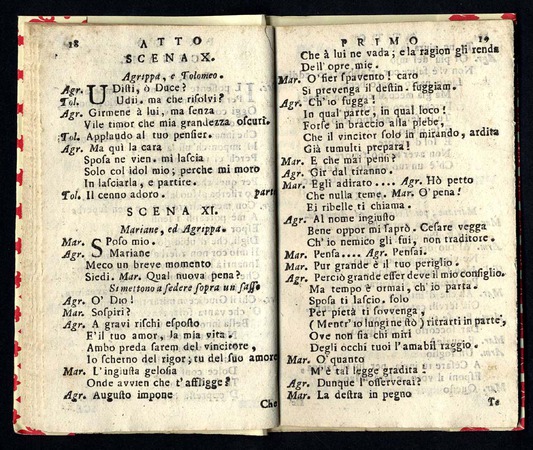 18 ATTO
SCENA X.
Agrippa, e Tolomeo.
Agr. UDisti, ò Duce?
Tol. Udii. ma che risolvi?
Agr. Girmene à lui, ma senza
Vile timor che mia grandezza oscuri.
Tol. Applaudo al tuo pensier.
Agr. Ma quì la cara
Sposa ne vien. mi lascia
Solo col idol mio; perche mi moro
In lasciarla, e partire.
Tol. Il cenno adoro. parte
SCENA XI.
Mariane, ed Agrippa.
Mar. SPoso mio.
Agr. Mariane
Meco un breve momento
Siedi. Mar. Qual nuova pena?
Si mettono a sedere sopra un sasso
Agr. O' Dio!
Mar. Sospiri?
Agr. A gravi rischi esposto
E'il tuo amor, la mia vita.
Ambo preda sarem del vincitore,
Io scherno del rigor; tu del suo amore
Mar. L'ingiusta gelosia
Onde avvien che t'affligge?
Agr. Augusto impone
Che
PRIMO 19
Che à lui ne vada; e la ragion gli renda
Dell'opre mie.
Mar. O'fier spavento! caro
Si prevenga il destin. fuggiam.
Agr. Ch'io fugga!
In qual parte, in qual loco!
Forse in braccio alla plebe,
Che il vincitor solo in mirando, ardita
Già tumulti prepara!
Mar. E che mai pensi?
Agr. Gir dal tiranno.
Mar. Egli adirato.... Agr. Hò petto
Che nulla teme. Mar. O'pena!
Ei ribelle ti chiama.
Agr. Al nome ingiusto
Bene oppor mi saprò. Cesare vegga
Ch'io nemico gli fui, non traditore.
Mar. Pensa.... Agr. Pensai.
Mar. Pur grande è il tuo periglio.
Agr. Perciò grande esser deve il mio consiglio.
Ma tempo è ormai, ch'io parta.
Sposa ti lascio. solo
Per pietà ti sovvenga,
(Mentr'io lungi ne stò) ritrarti in parte,
Ove non sia chi miri
Degli occhi tuoi l'amabil raggio.
Mar. O'quanto
M'è tal legge gradita!
Agr. Dunque l'osserverai?
Mar. La destra in pegno
Te